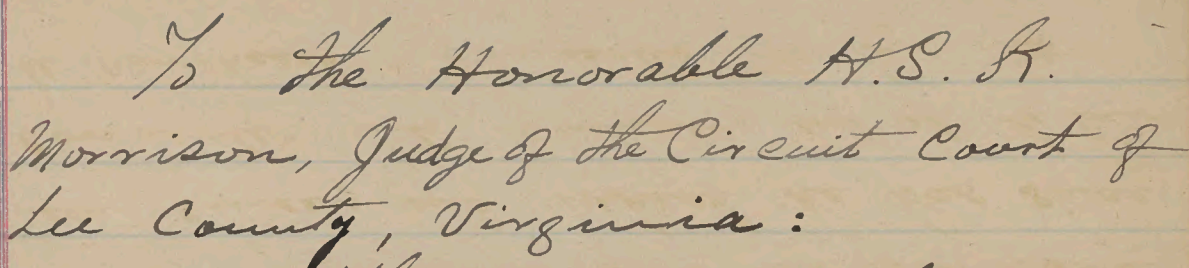 To the Honorable H.S. K.
Morrison, Judge of the Circuit Court of
Lee County, Virginia: